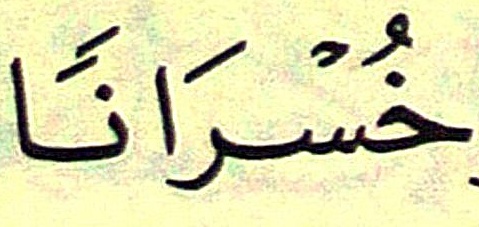 خُسْرَانًا